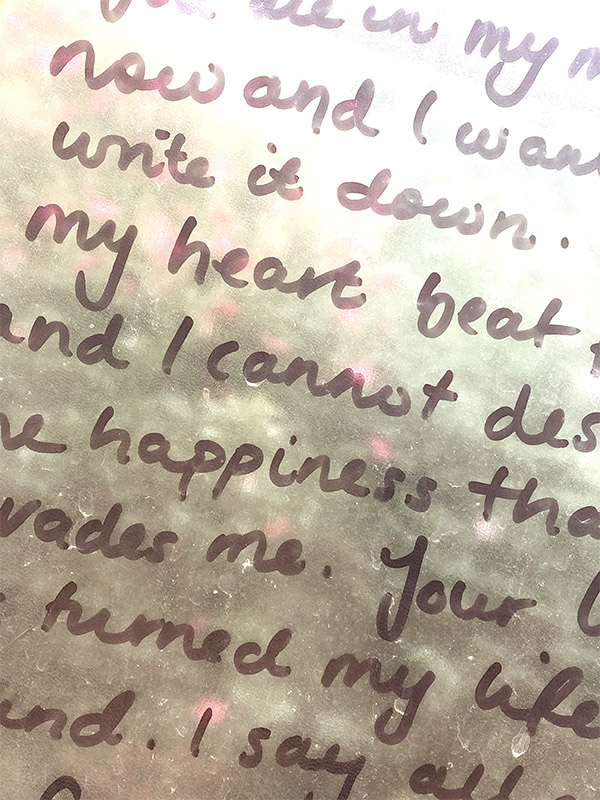 in my
now and I want
write it down.
my heart beat
and I cannot des
he happiness tha
vades me. Your
turned my life
und. I say all